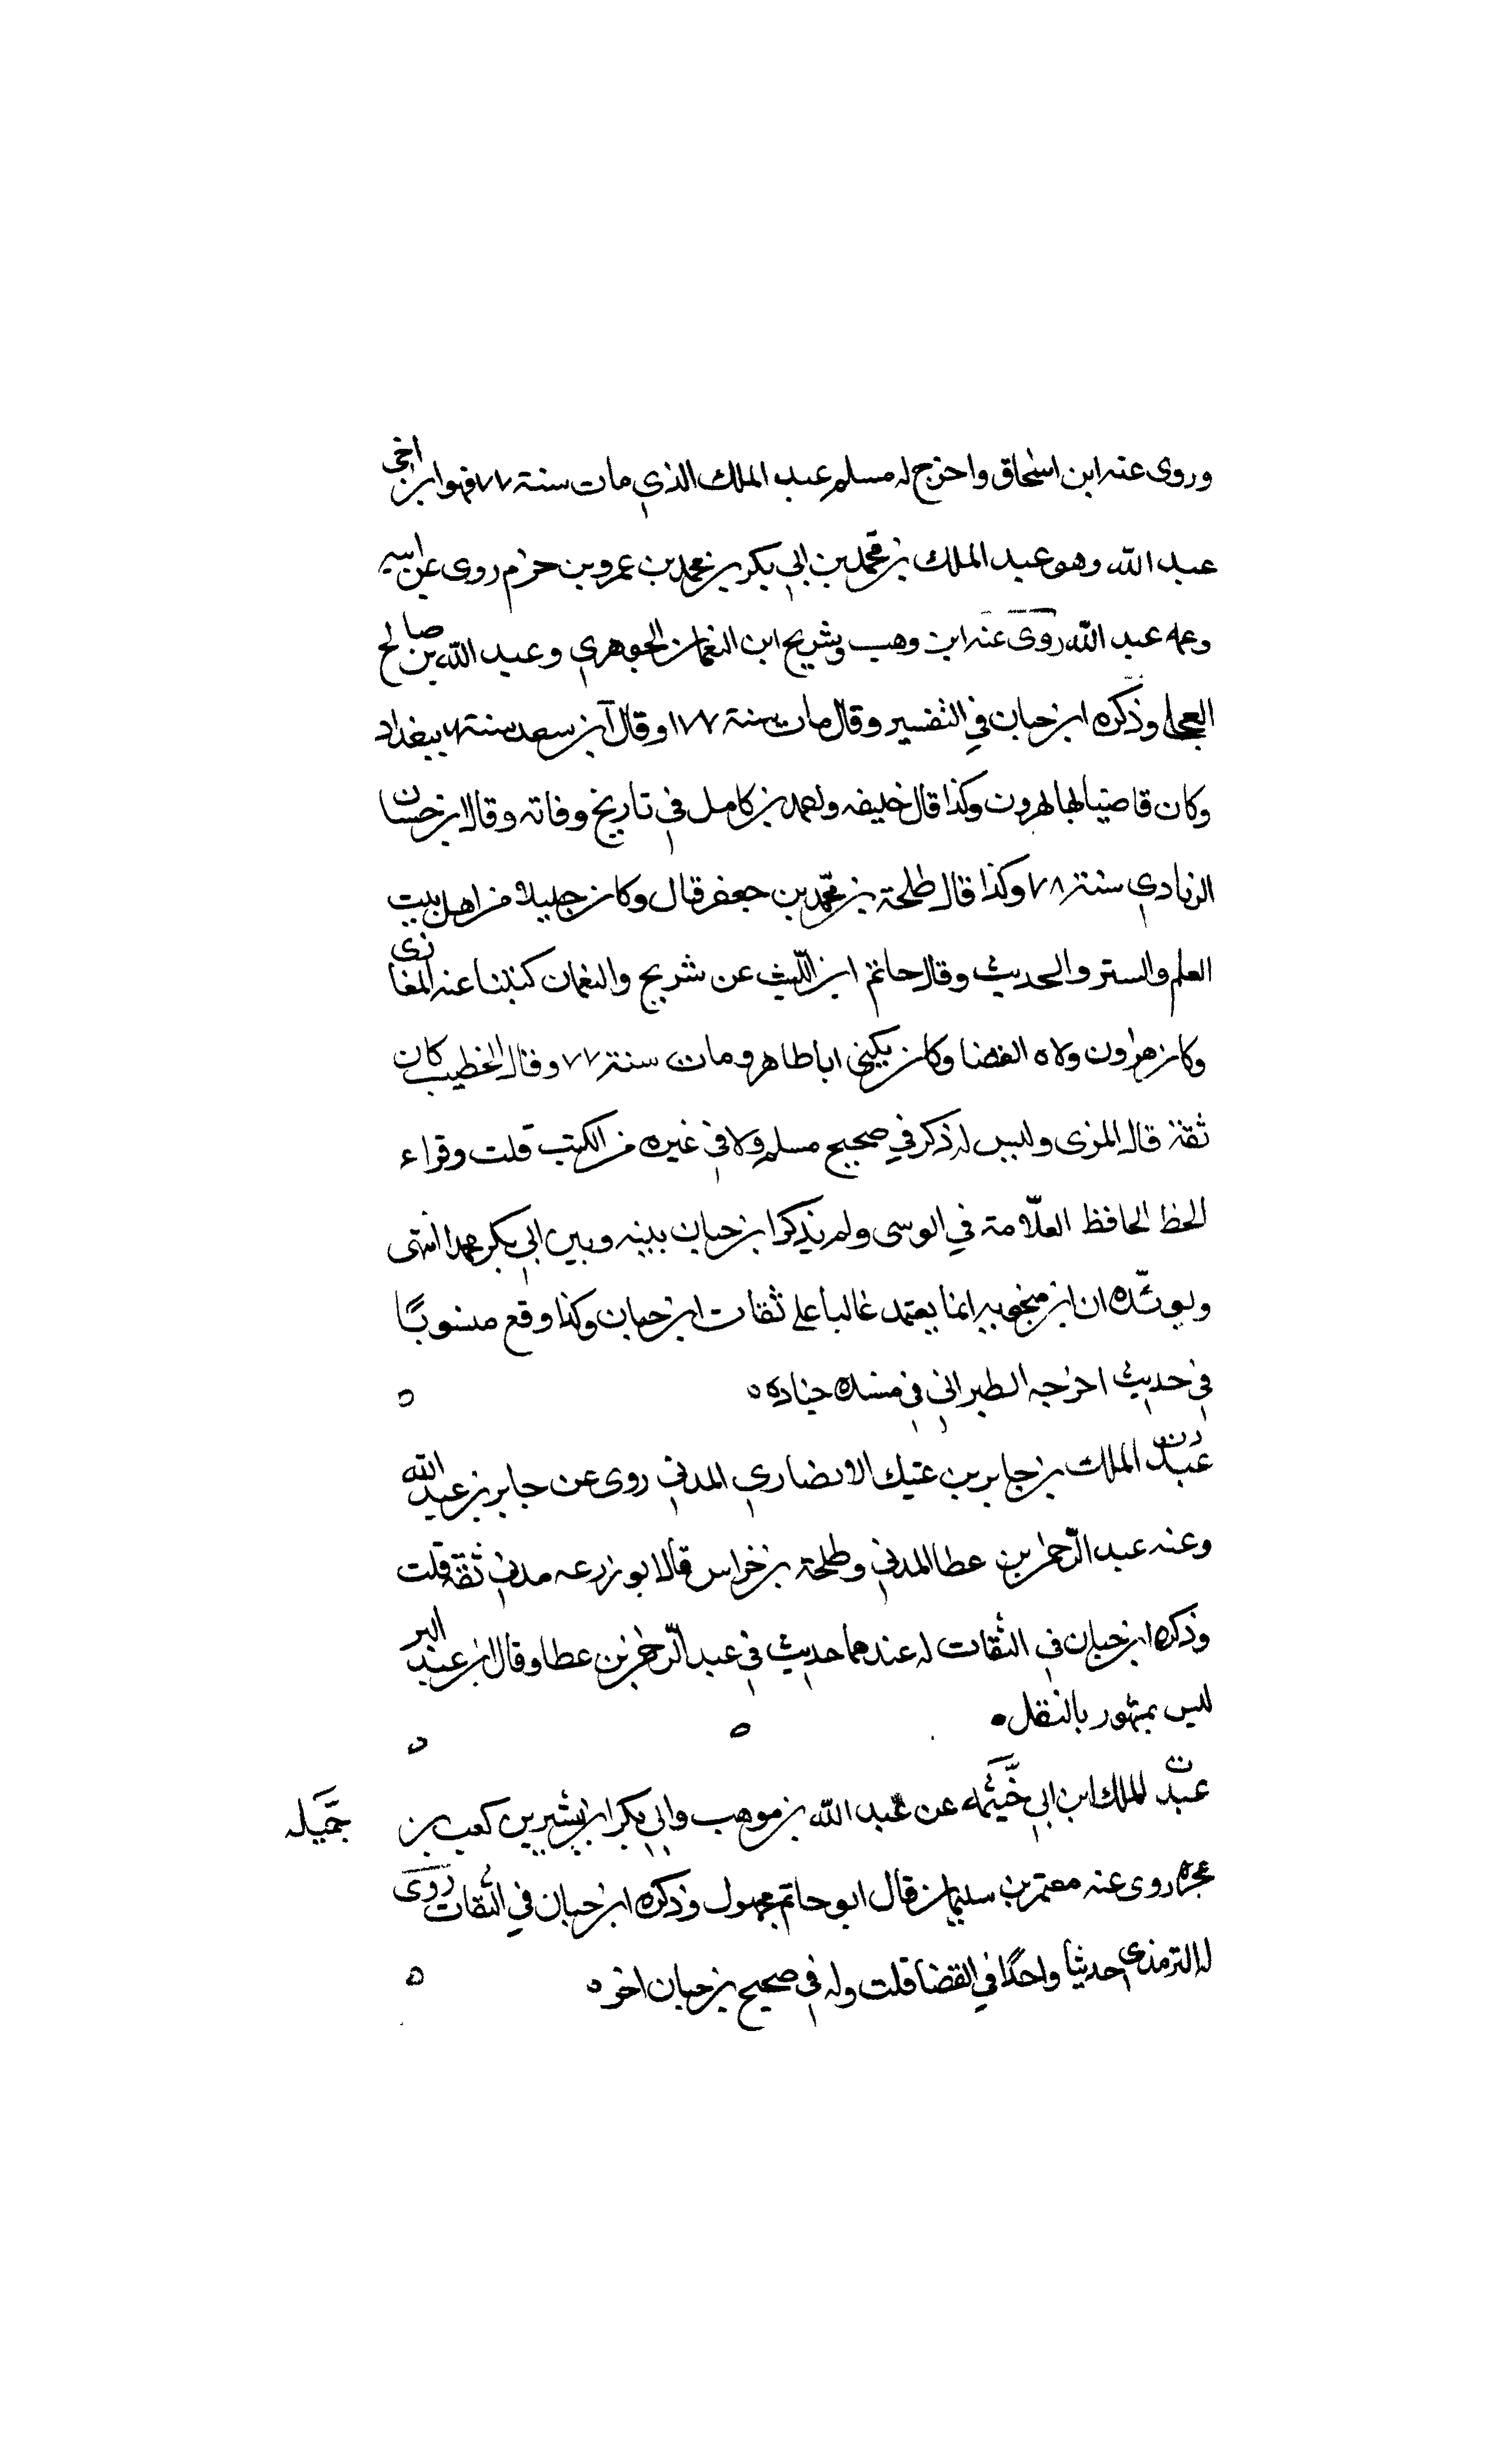 وروى عنه ابن اسحاق واخرج له مسلم عبد الملك الذي مات سنة ٧٧ فهو ابن اخى
عبد الله وهو عبد الملك بن محمد بن ابي بكر بن محمد بن عمرو بن حزم روى عن ابيه
وعمه عبد الله روى عنه ابن وهب وشريح ابن النعمان الجوهري وعبد الله بن صالح
العجلي وذكره ابن حبان في الثفسير وقال مات سنة ١٧٧ وقال ابن سعد سنة ببغداد
وكان قاضيا لها لهرون وكذا قال خليفه واحمد بن كامل في تاريخ وفاته وقال ابن حسان
الزيادي سنة ٧٨ وكذا قال طلحة بن محمد بن جعفر قال وكان جليلا من اهل بيت
العلم والستر والحديث وقال حاتم ابن الليث عن شريح والنعمان كتبنا عنه المغازى
وكان هرون ولاه القضا وكان يكنى ابا طاهر ومات سنة ٧٧ وقال الخطيب كان
ثقة قال المزى وليس له ذكر في صحيح مسلم ولا في غيره من الكتب قلت وقراء
الحظ الحافظ العلامة في الوسى ولم يذكر ابن حبان بينه وبين ابي بكر محمدا انتهى
ويوئده ان ابن منجويه انما يعتمد غالبا على ثقات ابن حبان وكذا وقع منسوبًا
في حديث اخرجه الطبراني في مسند جناده ه
عبد الملك بن جابر بن عتيك الانصاري المدني روى عن جابر بن عبد الله
وعنه عبد الرحمن بن عطا المدني وطلحة بن خراس قال ابو زرعه مدني ثقة قلت
وذكره ابن حبان في الثقات له عندهما حديث في عبد الرحمن بن عطا وقال ابن عبد البر
ليس بمشهور بالنقل
عبد الملك ابن ابي خَيثمه عن عبد الله بن موهب وابي بكر ابن بشير بن كعب بن
جَميله
عجره روى عنه معتمر بن سليمان قال ابو حاتم مجهول وذكره ابن حبان في الثقات روى
له الترمذى حديثا واحدًا في القضا قلت وله في صحيح بن حبان اخر ه